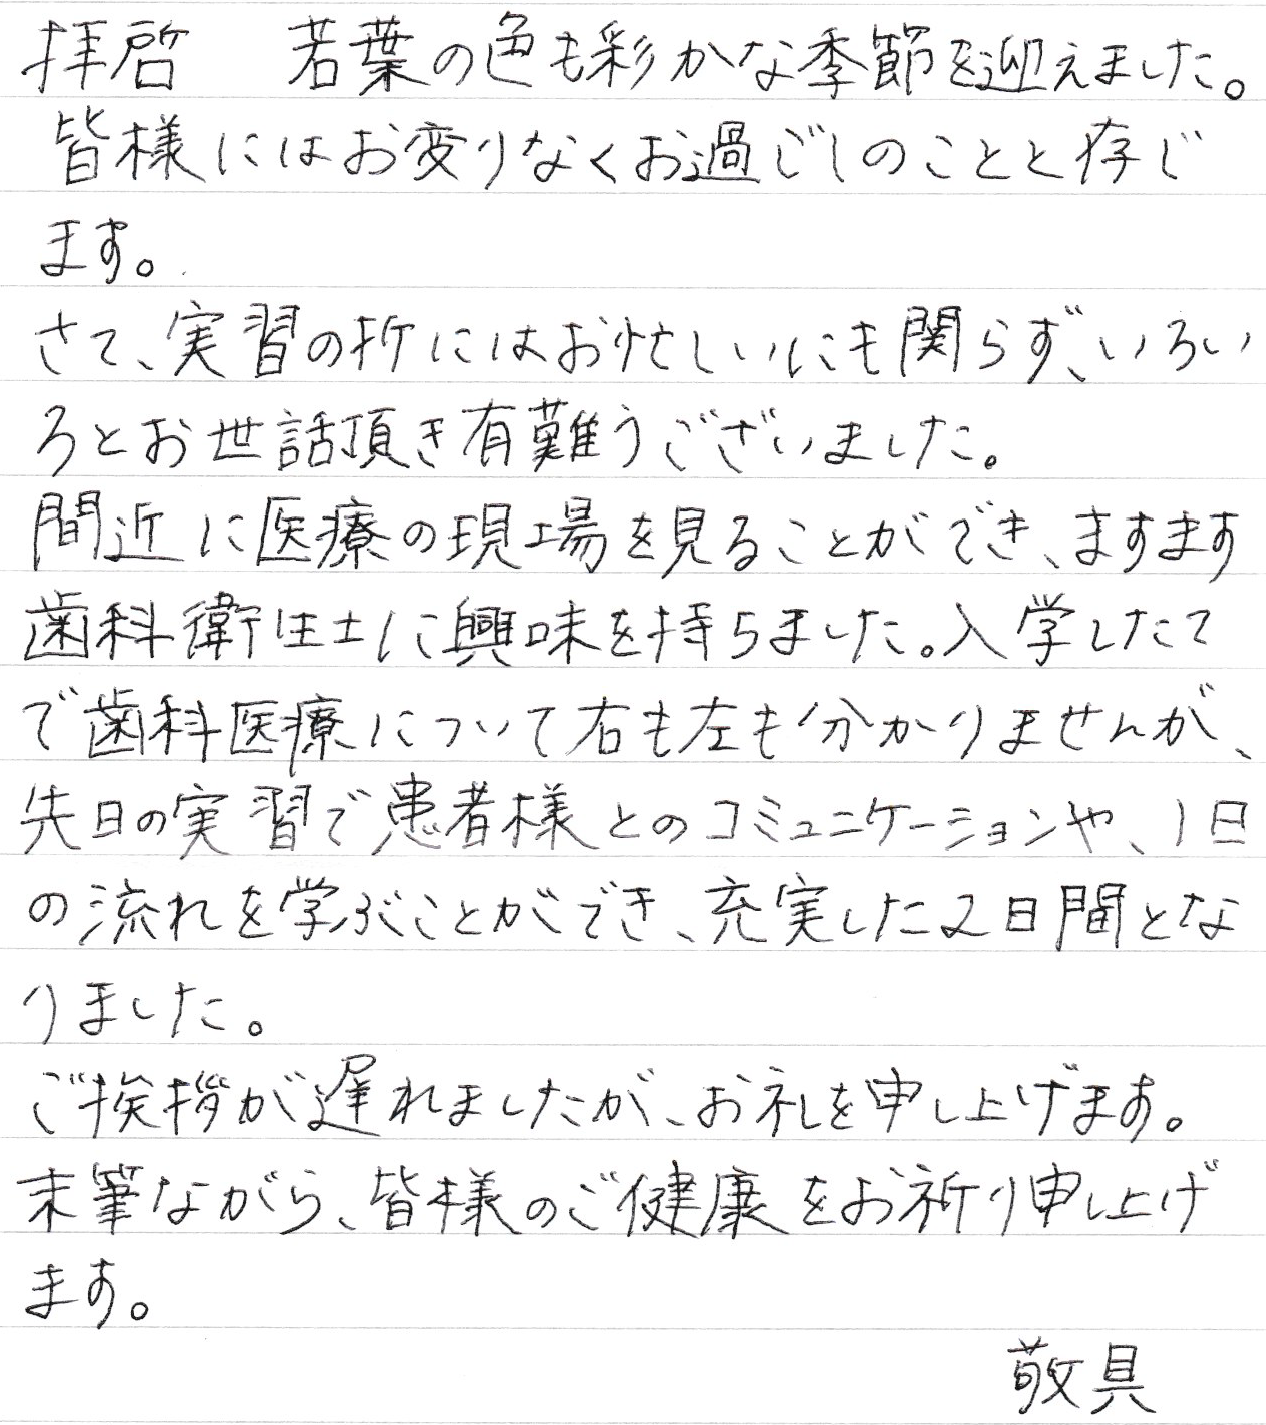 拝啓　若葉の色も彩かな季節を迎えました。
皆様にはお変りなくお過ごしのことと存じ
ます。
さて、実習の折にはお忙しいにも関らず、いろい
ろとお世話頂き有難うございました。
間近に医療の現場を見ることができ、ますます
歯科衛生士に興味を持ちました。入学したて
で歯科医療について右も左も分かりませんが、
先日の実習で患者様とのコミュニケーションや、1日
の流れを学ぶことができ、充実した2日間とな
りました。
ご挨拶が遅れましたが、お礼を申し上げます。
末筆ながら、皆様のご健康をお祈り申し上げ
ます。
敬具